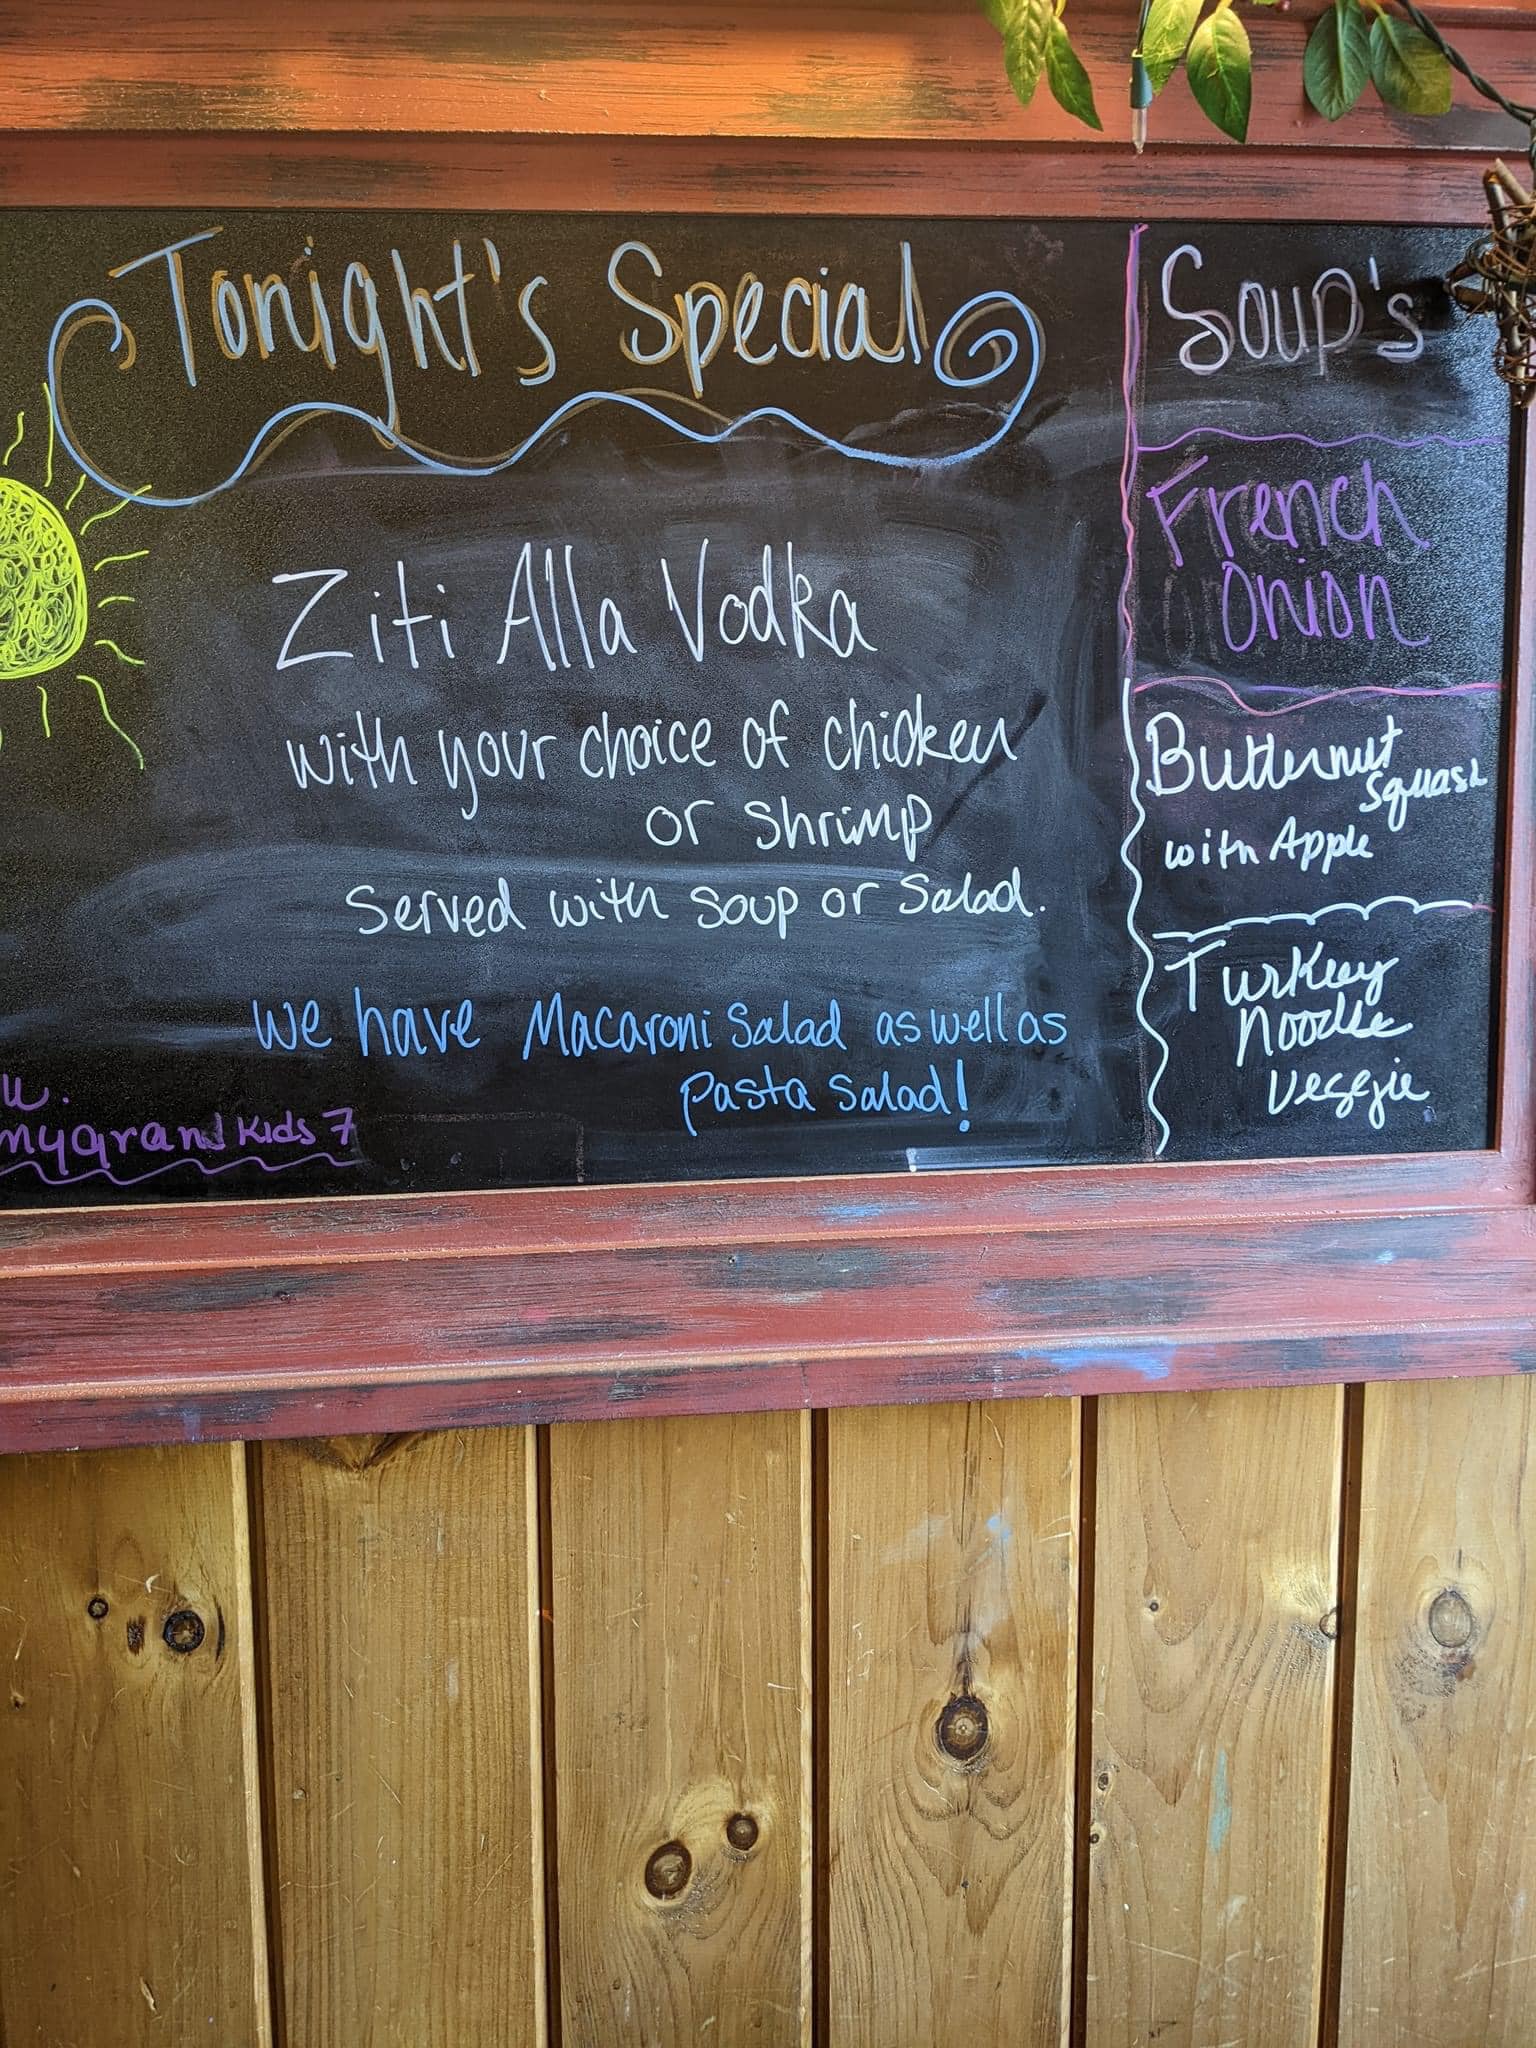 Tonight's Special
Ziti Alla Vodka
with your choice of chicken
or shrimp
Served with soup or salad.
we have Macaroni Salad as well as
pasta salad!
mygrandkids7
Soup's
French
Onion
Butternut
squash
with Apple
Turkey
Noodle
Veggie